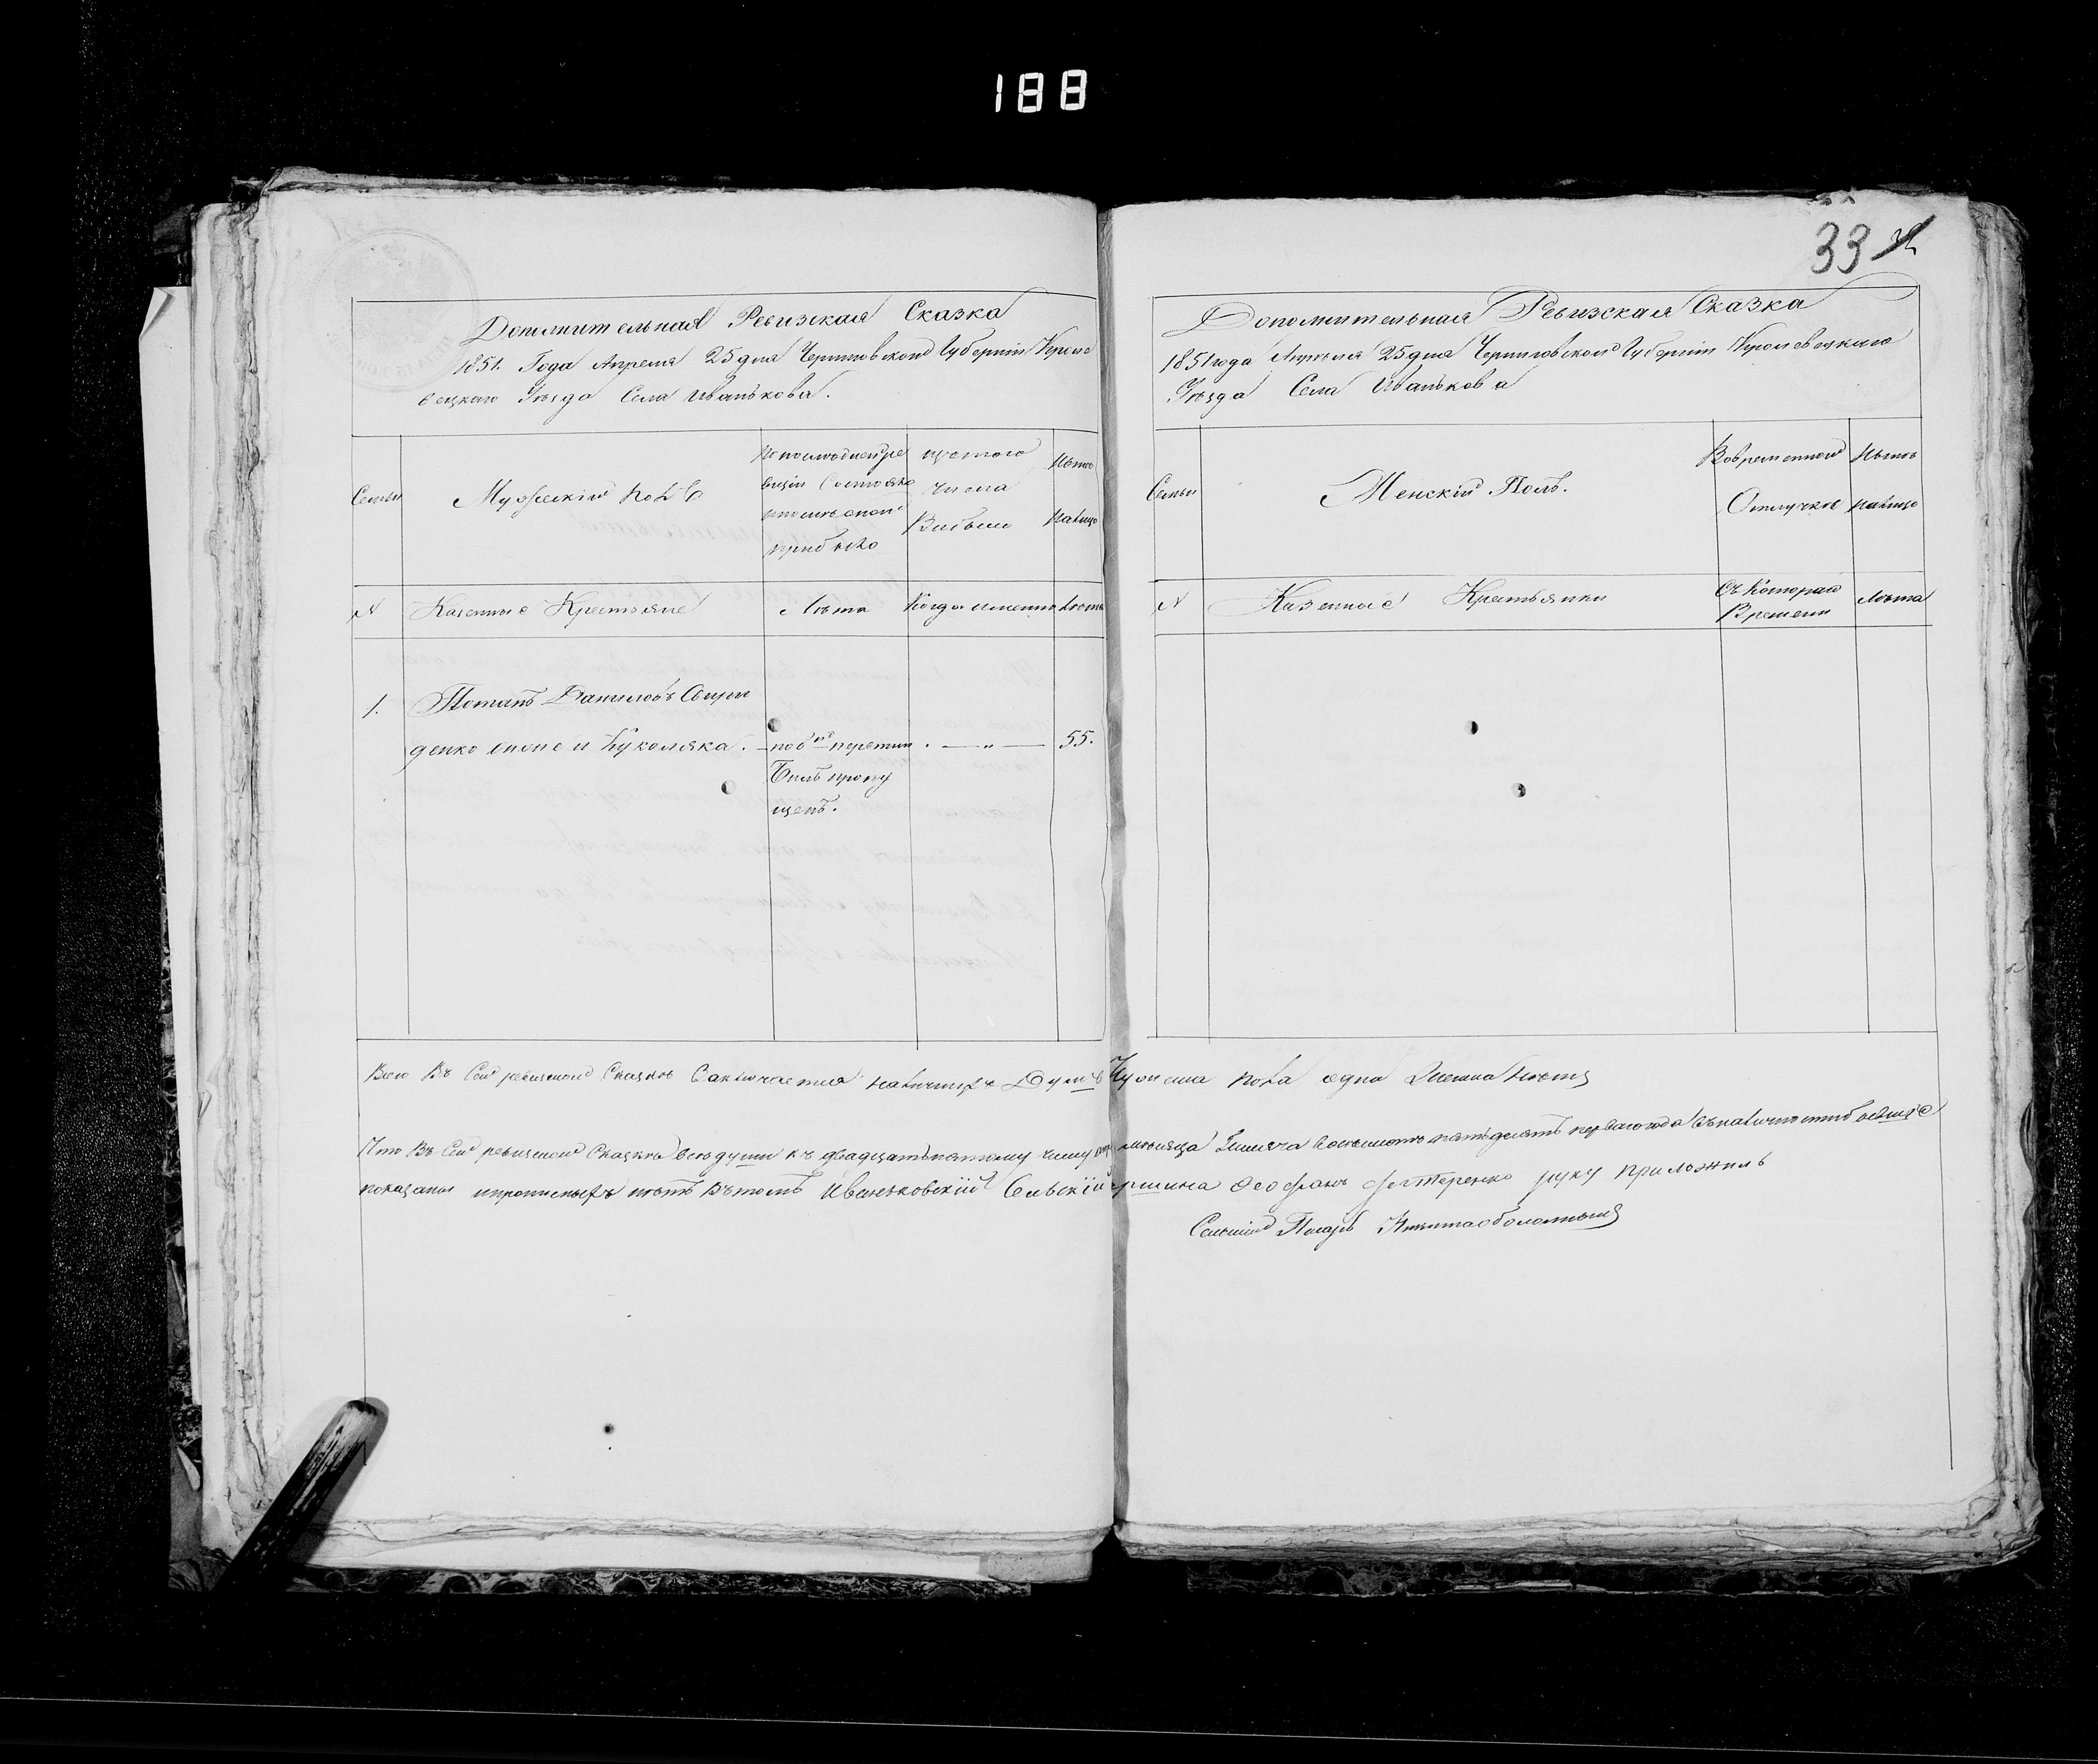 188
33
Дополнительная Ревизская Сказка
1851. Года Апреля 25 дня Черниговской Губернiи Кроле
вецкаго Уезда Села Иванькова.
Семьи
Мужескiй полъ
По последней ре
визiи Состояло
или после оной
прибыло
изъ того
числа
Выбыло
Ныне
налицо
N
Казенные Крестьяне
Лета
Когда именно
Лета
1.
Потапъ Даниловъ Свири
денко онъ же и Куколяка.
— по 8й переписи
. — „ —
55.
Былъ пропу
щенъ.
Дополнительная Ревизская Сказка
1851 года Апреля 25 дня Черниговской Губернiи Кролевецкаго
Уезда Села Иванькова
Семьи
Женскiй Полъ.
Во временной
Отлучке
Ныне
налицо
N
Казенные Крестьянки
Съ Котораго
Времени
Лета
Всего Въ Сей ревизской Сказке Заключается наличныхъ Душъ Мужеска пола одна Женска нетъ
Что Въ Сей ревизской Сказке все души къ двадцать пятому числу месяца восемьсотъ пятьдесятъ перваго года въ наличности бывшiе
показаны и прописныхъ нетъ Въ томъ Иваньковскiй Сельскiй Старшина Феофанъ руку приложилъ
Сельскiй Писарь Никита Оболонный